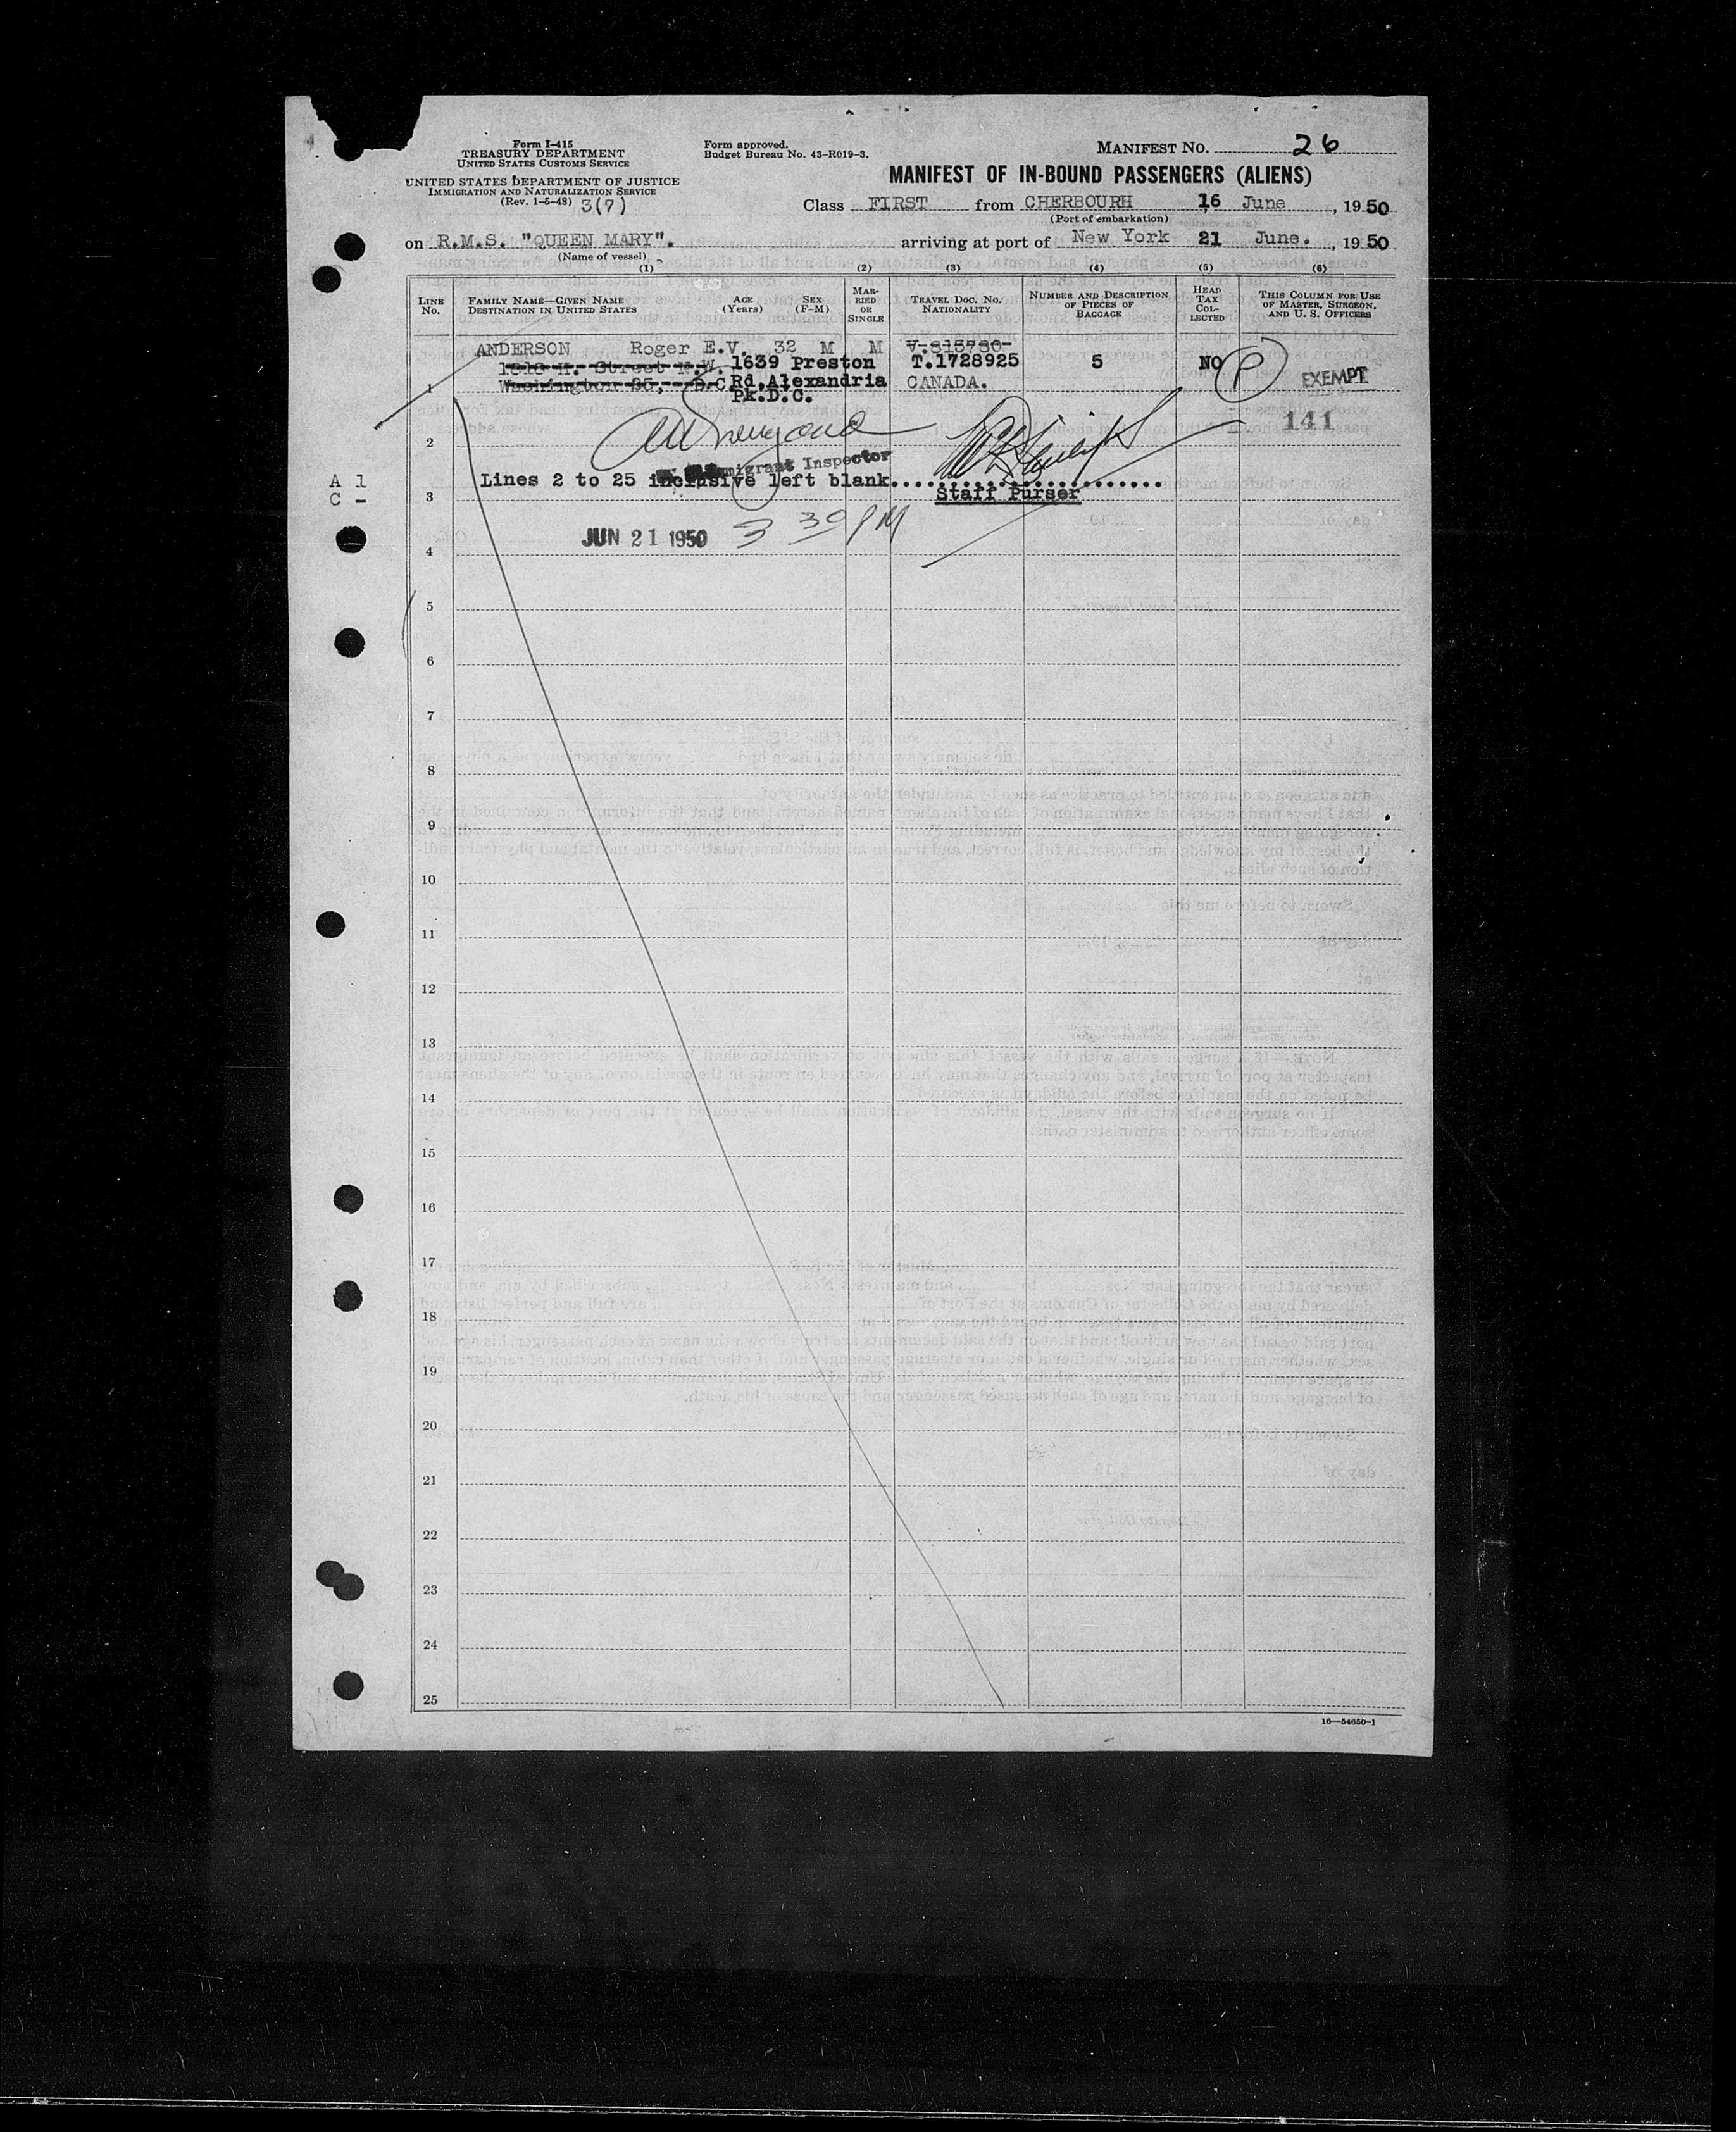 Form I-415
TREASURY DEPARTMENT
UNITED STATES CUSTOMS SERVICE
UNITED STATES DEPARTMENT OF JUSTICE
IMMIGRATION AND NATURALIZATION SERVICE
(Rev. 1-5-48) 3(7)
Form approved.
Budget Bureau No. 43-R019-3.
MANIFEST NO. 26
MANIFEST OF IN-BOUND PASSENGERS (ALIENS)
Class FIRST from CHERBOURH 16 June, 1950
(Port of embarkation)
on R.M.S. "QUEEN MARY". arriving at port of New York 21 June., 1950
(Name of vessel)
(1) (2) (3) (4) (5) (6)
LINE NO.
FAMILY NAME—GIVEN NAME
DESTINATION IN UNITED STATES
AGE (Years)
SEX (F-M)
MARRIED OR SINGLE
TRAVEL DOC. NO.
NATIONALITY
NUMBER AND DESCRIPTION
OF PIECES OF
BAGGAGE
HEAD TAX COLLECTED
THIS COLUMN FOR USE
OF MASTER, SURGEON,
AND U. S. OFFICERS
ANDERSON Roger E.V. 32 M M V-315730-
Street N.W. 1639 Preston T.1728925 5 NO P EXEMPT
1 Washington D.C. Rd.Alexandria CANADA.
Pk.D.C.
141
2
Immigrant Inspector
A 1
Lines 2 to 25 inclusive left blank
C -
3
Staff Purser
JUN 21 1950 3 30 PM
4
5
6
7
8
9
10
11
12
13
14
15
16
17
18
19
20
21
22
23
24
25
16—54650-1